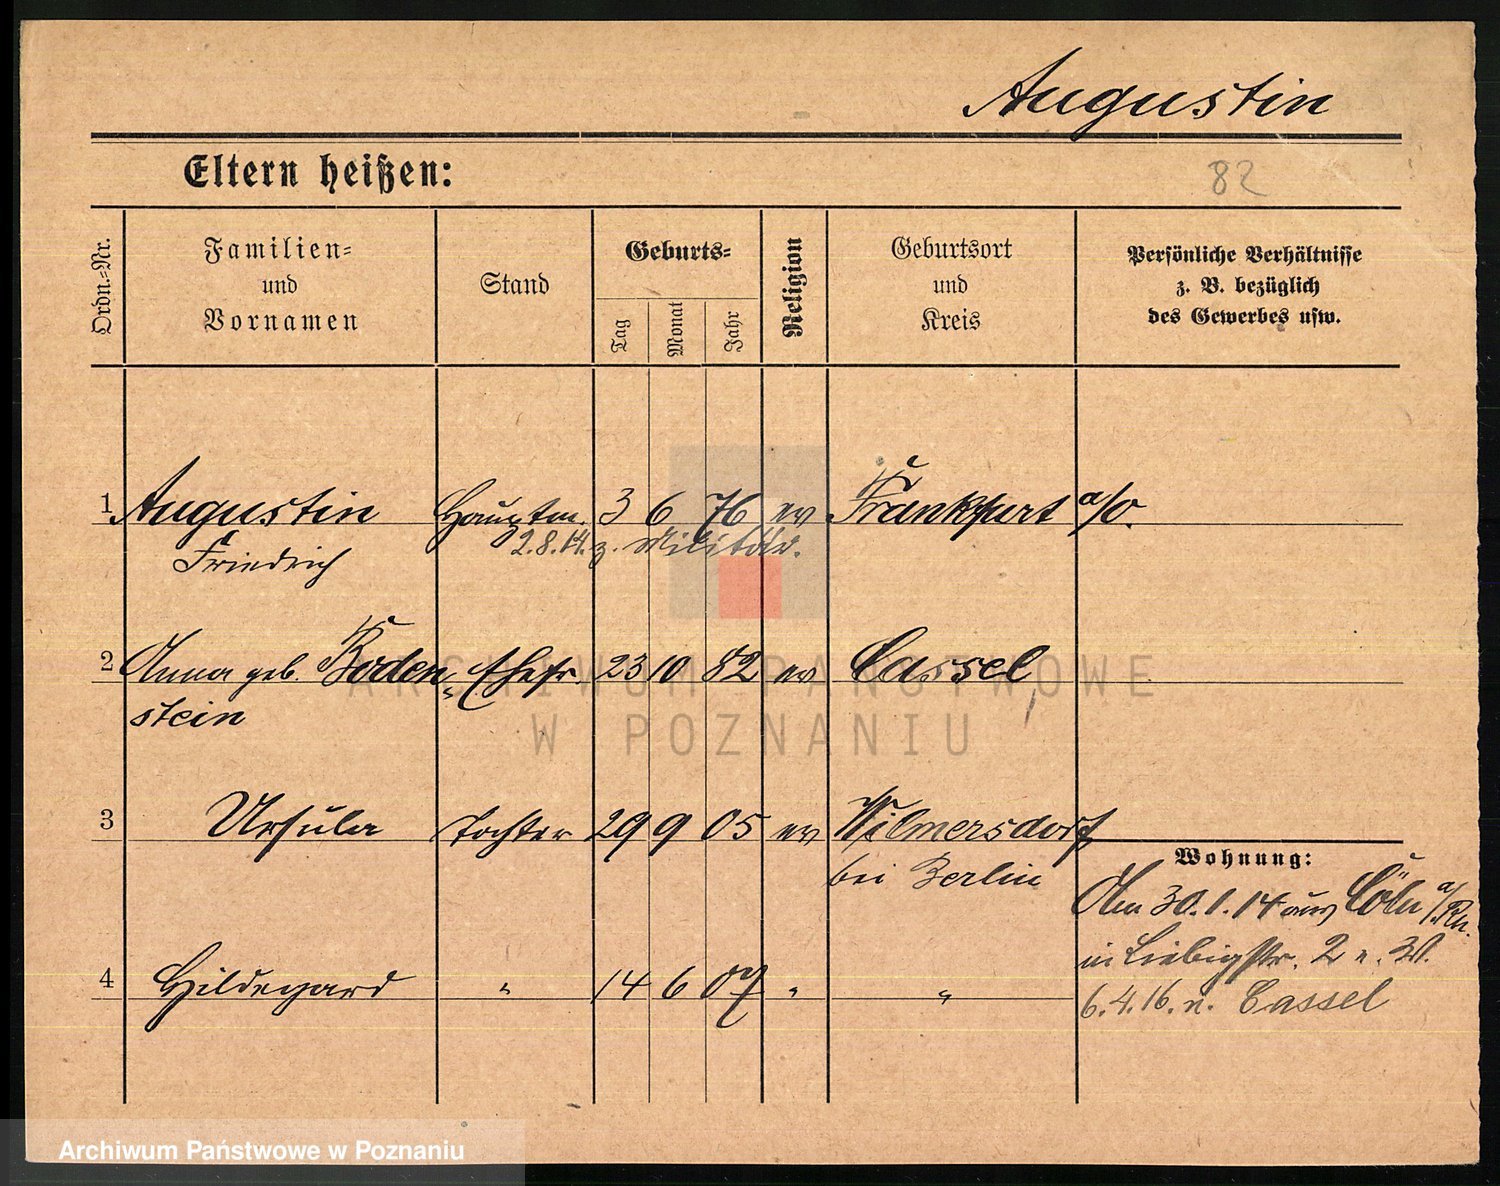 Augustin
Eltern heißen:
82
Ordn.-Nr.
Familien-
und
Vornamen
Stand
Geburts-
Tag
Monat
Jahr
Religion
Geburtsort
und
Kreis
Persönliche Verhältnisse
z. B. bezüglich
des Gewerbes usw.
1 Augustin Hauptm. 3 6 76 ev Frankfurt a/O.
Friedrich 2.8.14. z. Militär.
2 Anna geb. Boden„ Ehefr. 23 10 82 ev Cassel
stein
3 Ursula Tochter 29 9 05 ev Wilmersdorf
bei Berlin
Wohnung:
Am 30.1.14 aus Cöln a/Rh.
in Liebigstr. 2 n. W.
4 Hildegard " 14 6 07 " "
6.4.16. n. Cassel
ARCHIWUM PAŃSTWOWE
W POZNANIU
Archiwum Państwowe w Poznaniu